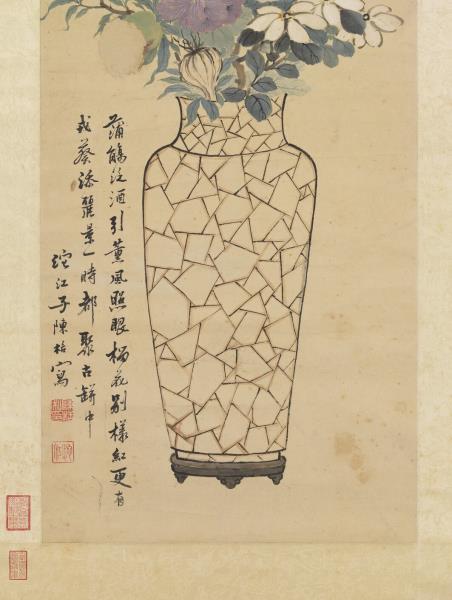 蒲觴泛酒引薰風照眼榴花別樣紅更有
戎葵添麗景一時都聚古缾中
沱江子陳枯寫